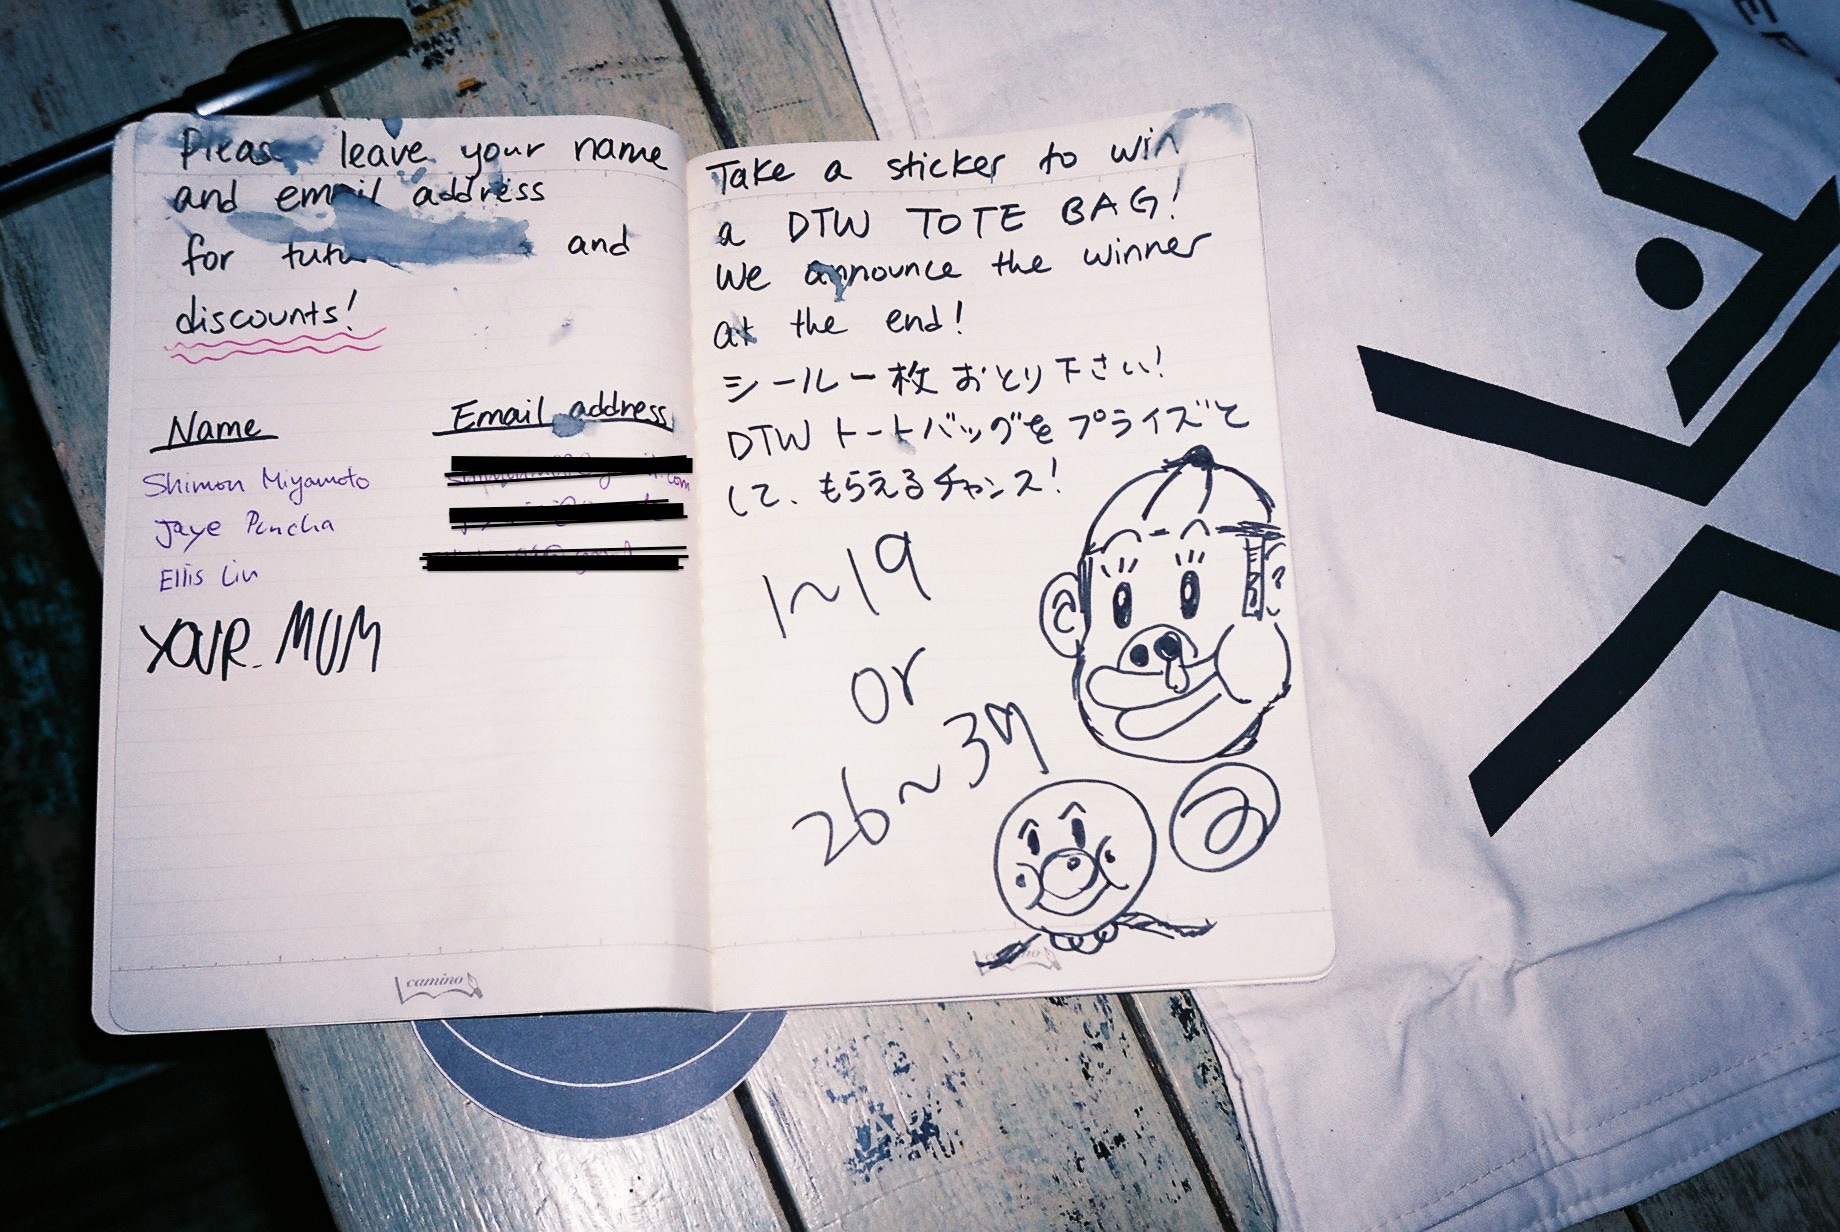 Please leave your name
and email address
for futu and
discounts!
Name Email address
Shimon Miyamoto
Jaye Pencha
Ellis Liu
YOUR MUM
camino
Take a sticker to win
a DTW TOTE BAG!
We announce the winner
at the end!
シール一枚おとり下さい!
DTWトートバッグをプライズと
して、もらえるチャンス!
1~19
or
26~37